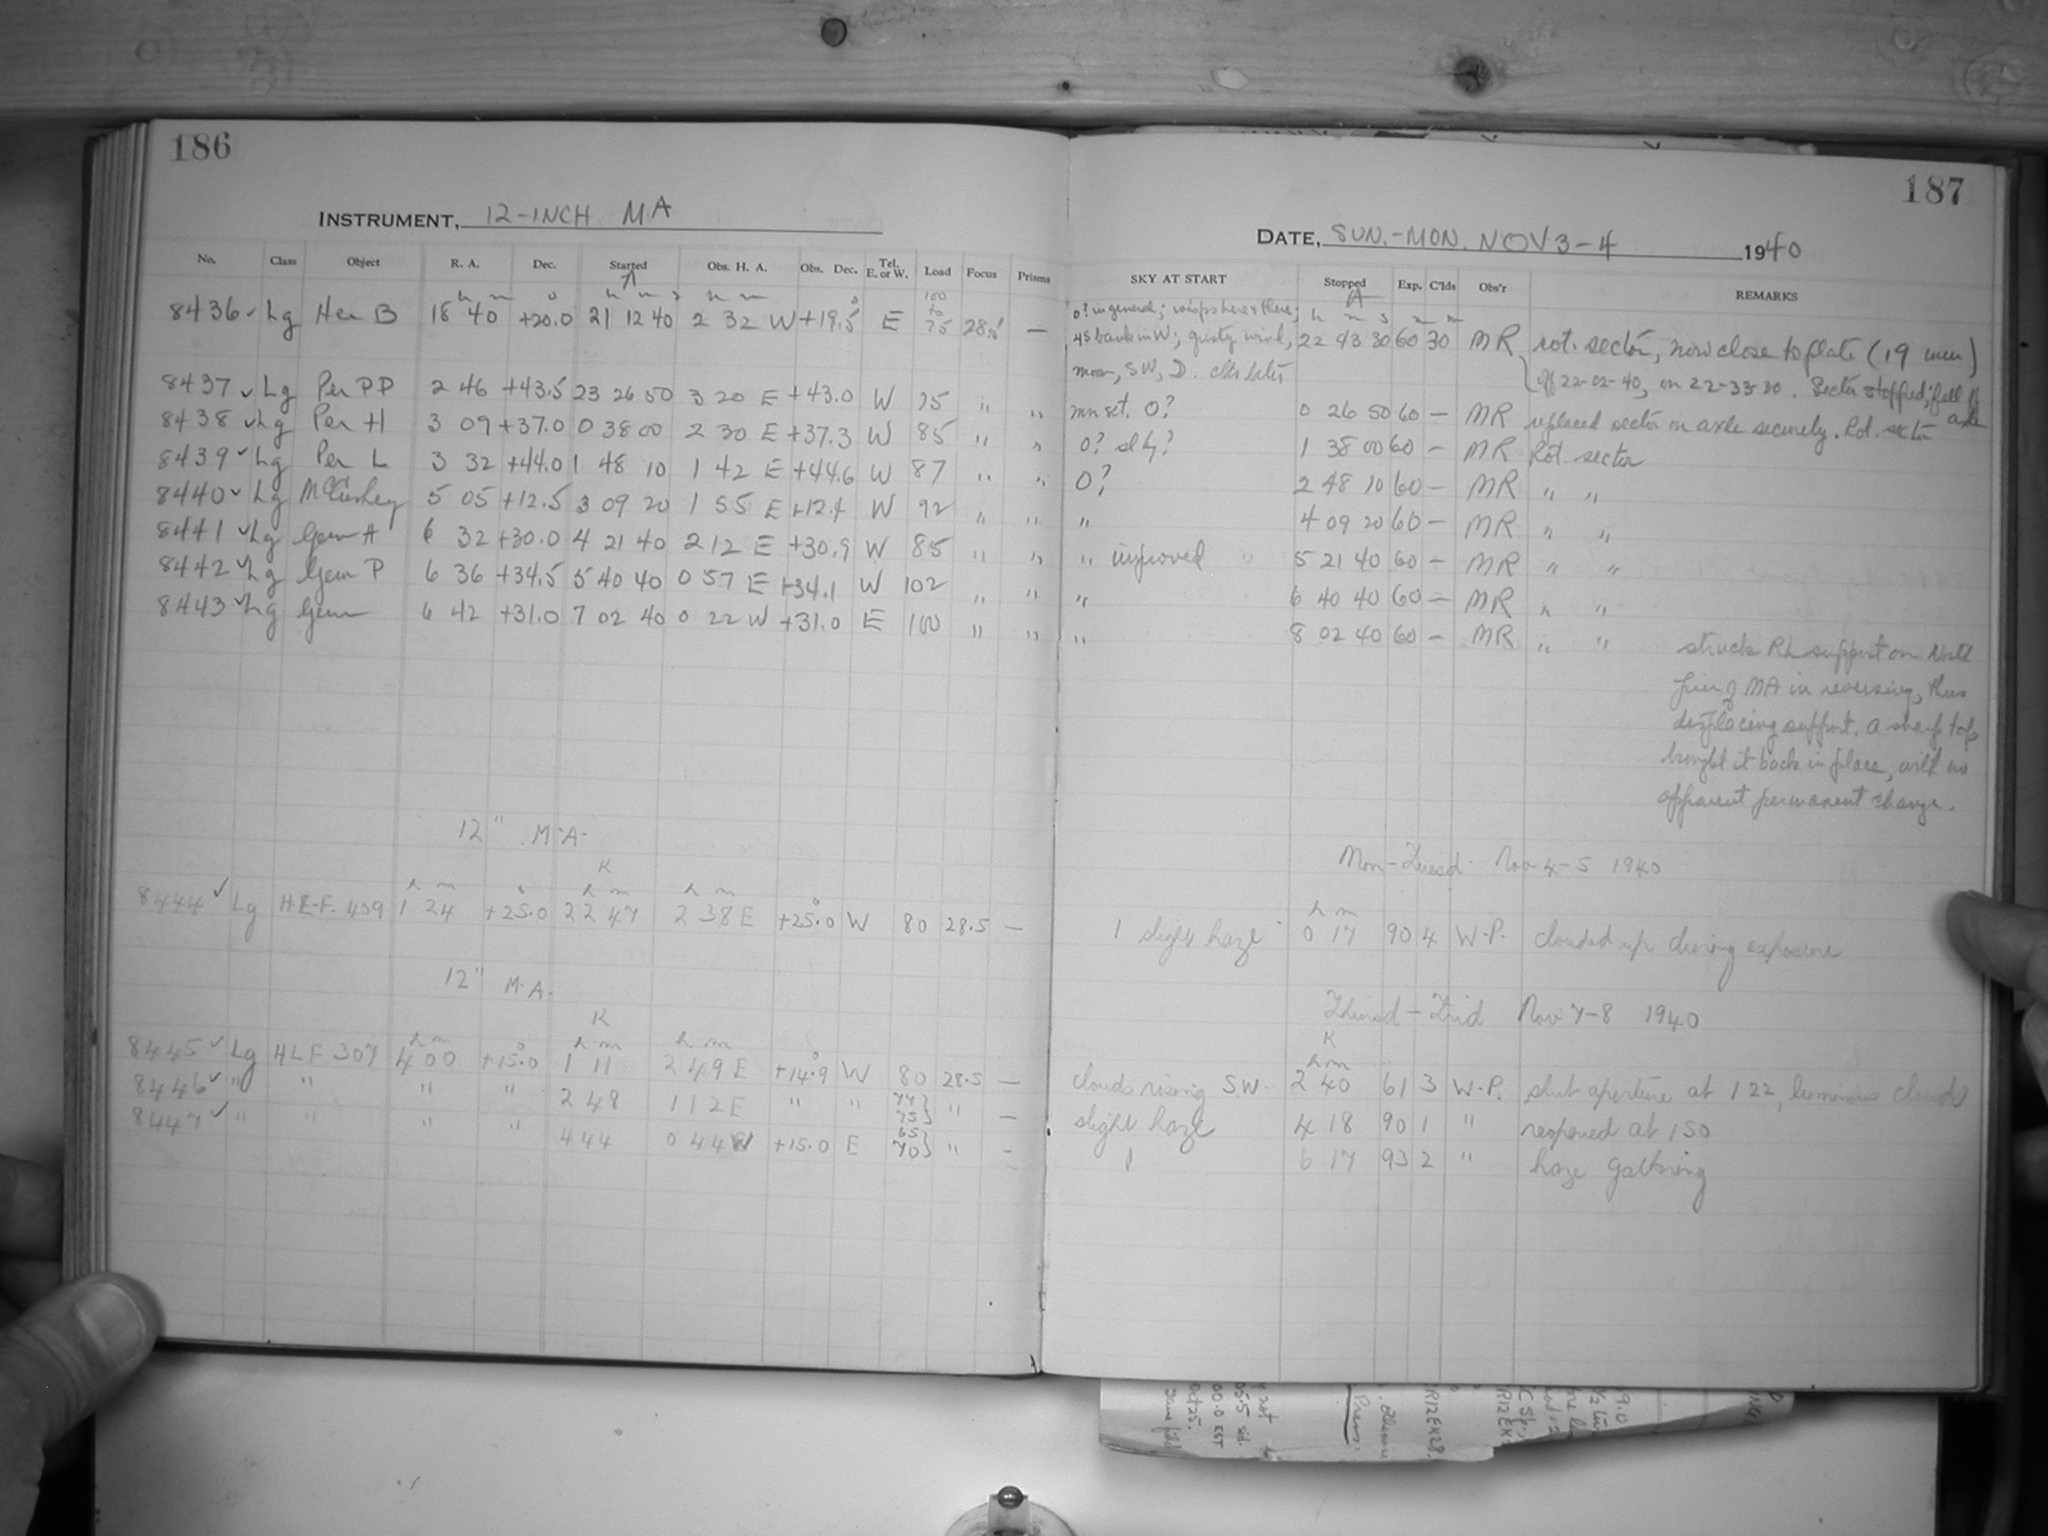 186
INSTRUMENT, 12-INCH MA
No. Class Object R. A. Dec. Started Obs. H. A. Obs. Dec. Tel. E. or W. Load Focus Prisms
A
h m ° h m s h m °
8436 ✓ Lg Her B 18 40 +20.0 21 12 40 2 32 W +19.5 E 100 to 75 28.5 —
8437 ✓ Lg Per PP 2 46 +43.5 23 26 50 3 20 E +43.0 W 75 " "
8438 ✓ Lg Per H 3 09 +37.0 0 38 00 2 30 E +37.3 W 85 " "
8439 ✓ Lg Per L 3 32 +44.0 1 48 10 1 42 E +44.6 W 87 " "
8440 ✓ Lg McCuskey 5 05 +12.5 3 09 20 1 55 E +12.4 W 92 " "
8441 ✓ Lg Gem H 6 32 +30.0 4 21 40 2 12 E +30.9 W 85 " "
8442 ✓ Lg Gem P 6 36 +34.5 5 40 40 0 57 E +34.1 W 102 " "
8443 ✓ Lg Gem 6 42 +31.0 7 02 40 0 22 W +31.0 E 100 " "
12" M.A.
K
h m ° h m h m °
8444 ✓ Lg H.L.F. 409 1 24 +25.0 22 47 2 38 E +25.0 W 80 28.5 —
12" M.A.
K
h m ° h m h m °
8445 ✓ Lg HLF 307 4 00 +15.0 1 11 2 49 E +14.9 W 80 28.5 —
8446 ✓ " " " " 2 48 1 12 E " " 77 75 } " —
8447 ✓ " " " " 4 44 0 44 W +15.0 E 65 70 } " —
187
DATE, SUN.-MON. NOV 3-4 1940
SKY AT START Stopped Exp. C'lds Obs'r REMARKS
A
h m s m m
0? in general; wisps here & there;
45 bank in W; gusty wind, 22 43 30 60 30 MR rot. sector, now close to plate (19 mm)
moon, SW, D. clds later off 22-02-40, on 22-33-30. Sector stopped; fell off axle
mn set. 0? 0 26 50 60 — MR replaced sector on axle securely. Rot. sector
0? sl hz? 1 38 00 60 — MR Rot. sector
0? 2 48 10 60 — MR " "
" 4 09 20 60 — MR " "
" improved 5 21 40 60 — MR " "
" 6 40 40 60 — MR " "
" 8 02 40 60 — MR " "
struck RL support on North
pier of MA in reversing, thus
displacing support. A sharp tap
brought it back in place, with no
apparent permanent change.
Mon-Tuesd. Nov 4-5 1940
h m
1 slight haze 0 17 90 4 W.P. clouded up during exposure
Thursd-Frid Nov 7-8 1940
K
h m
clouds rising S.W. 2 40 61 3 W.P. shut aperture at 1 22, luminous clouds
slight haze 4 18 90 1 " reopened at 1 50
1 6 17 93 2 " haze gathering